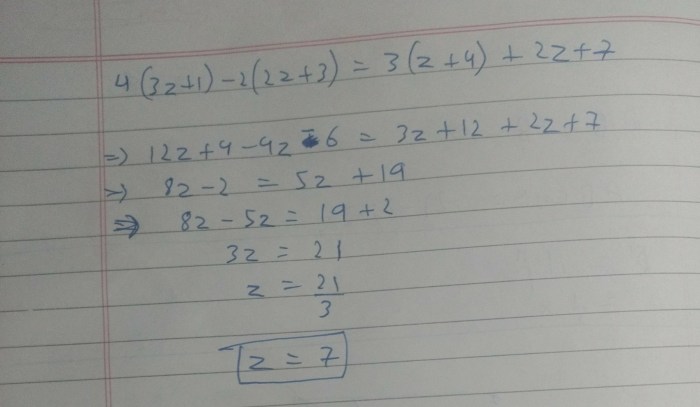 4(3z+1)-2(2z+3) = 3(z+4) + 2z+7
=> 12z+4-4z-6 = 3z+12+2z+7
=> 8z-2 = 5z+19
=> 8z-5z = 19+2
3z = 21
z = 21/3
z = 7